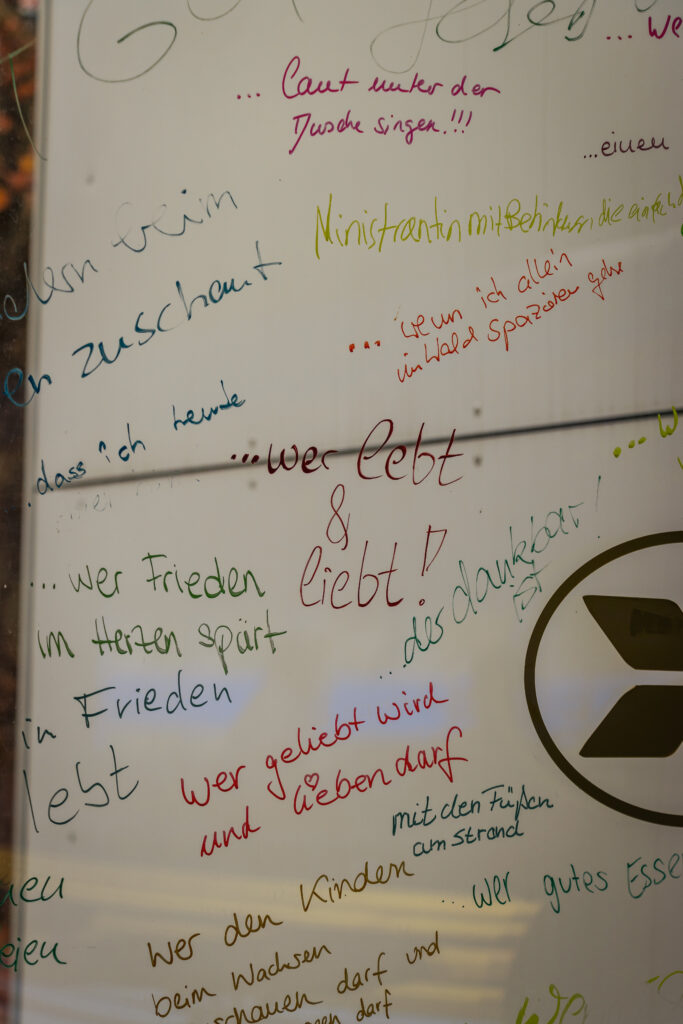 ... Laut unter der
Dusche singen!!!
...einen
beim
Ministrantin mit die
en zuschaut
... wenn ich allein
im Wald spazieren gehe
dass ich heute
...wer lebt
&
liebt!
... wer Frieden
im Herzen spürt
in Frieden
lebt
...der dankbar
ist!
wer geliebt wird
und lieben darf
mit den Füßen
am Strand
...wer gutes Esse
wer den Kindern
beim Wachsen
schauen darf und
darf